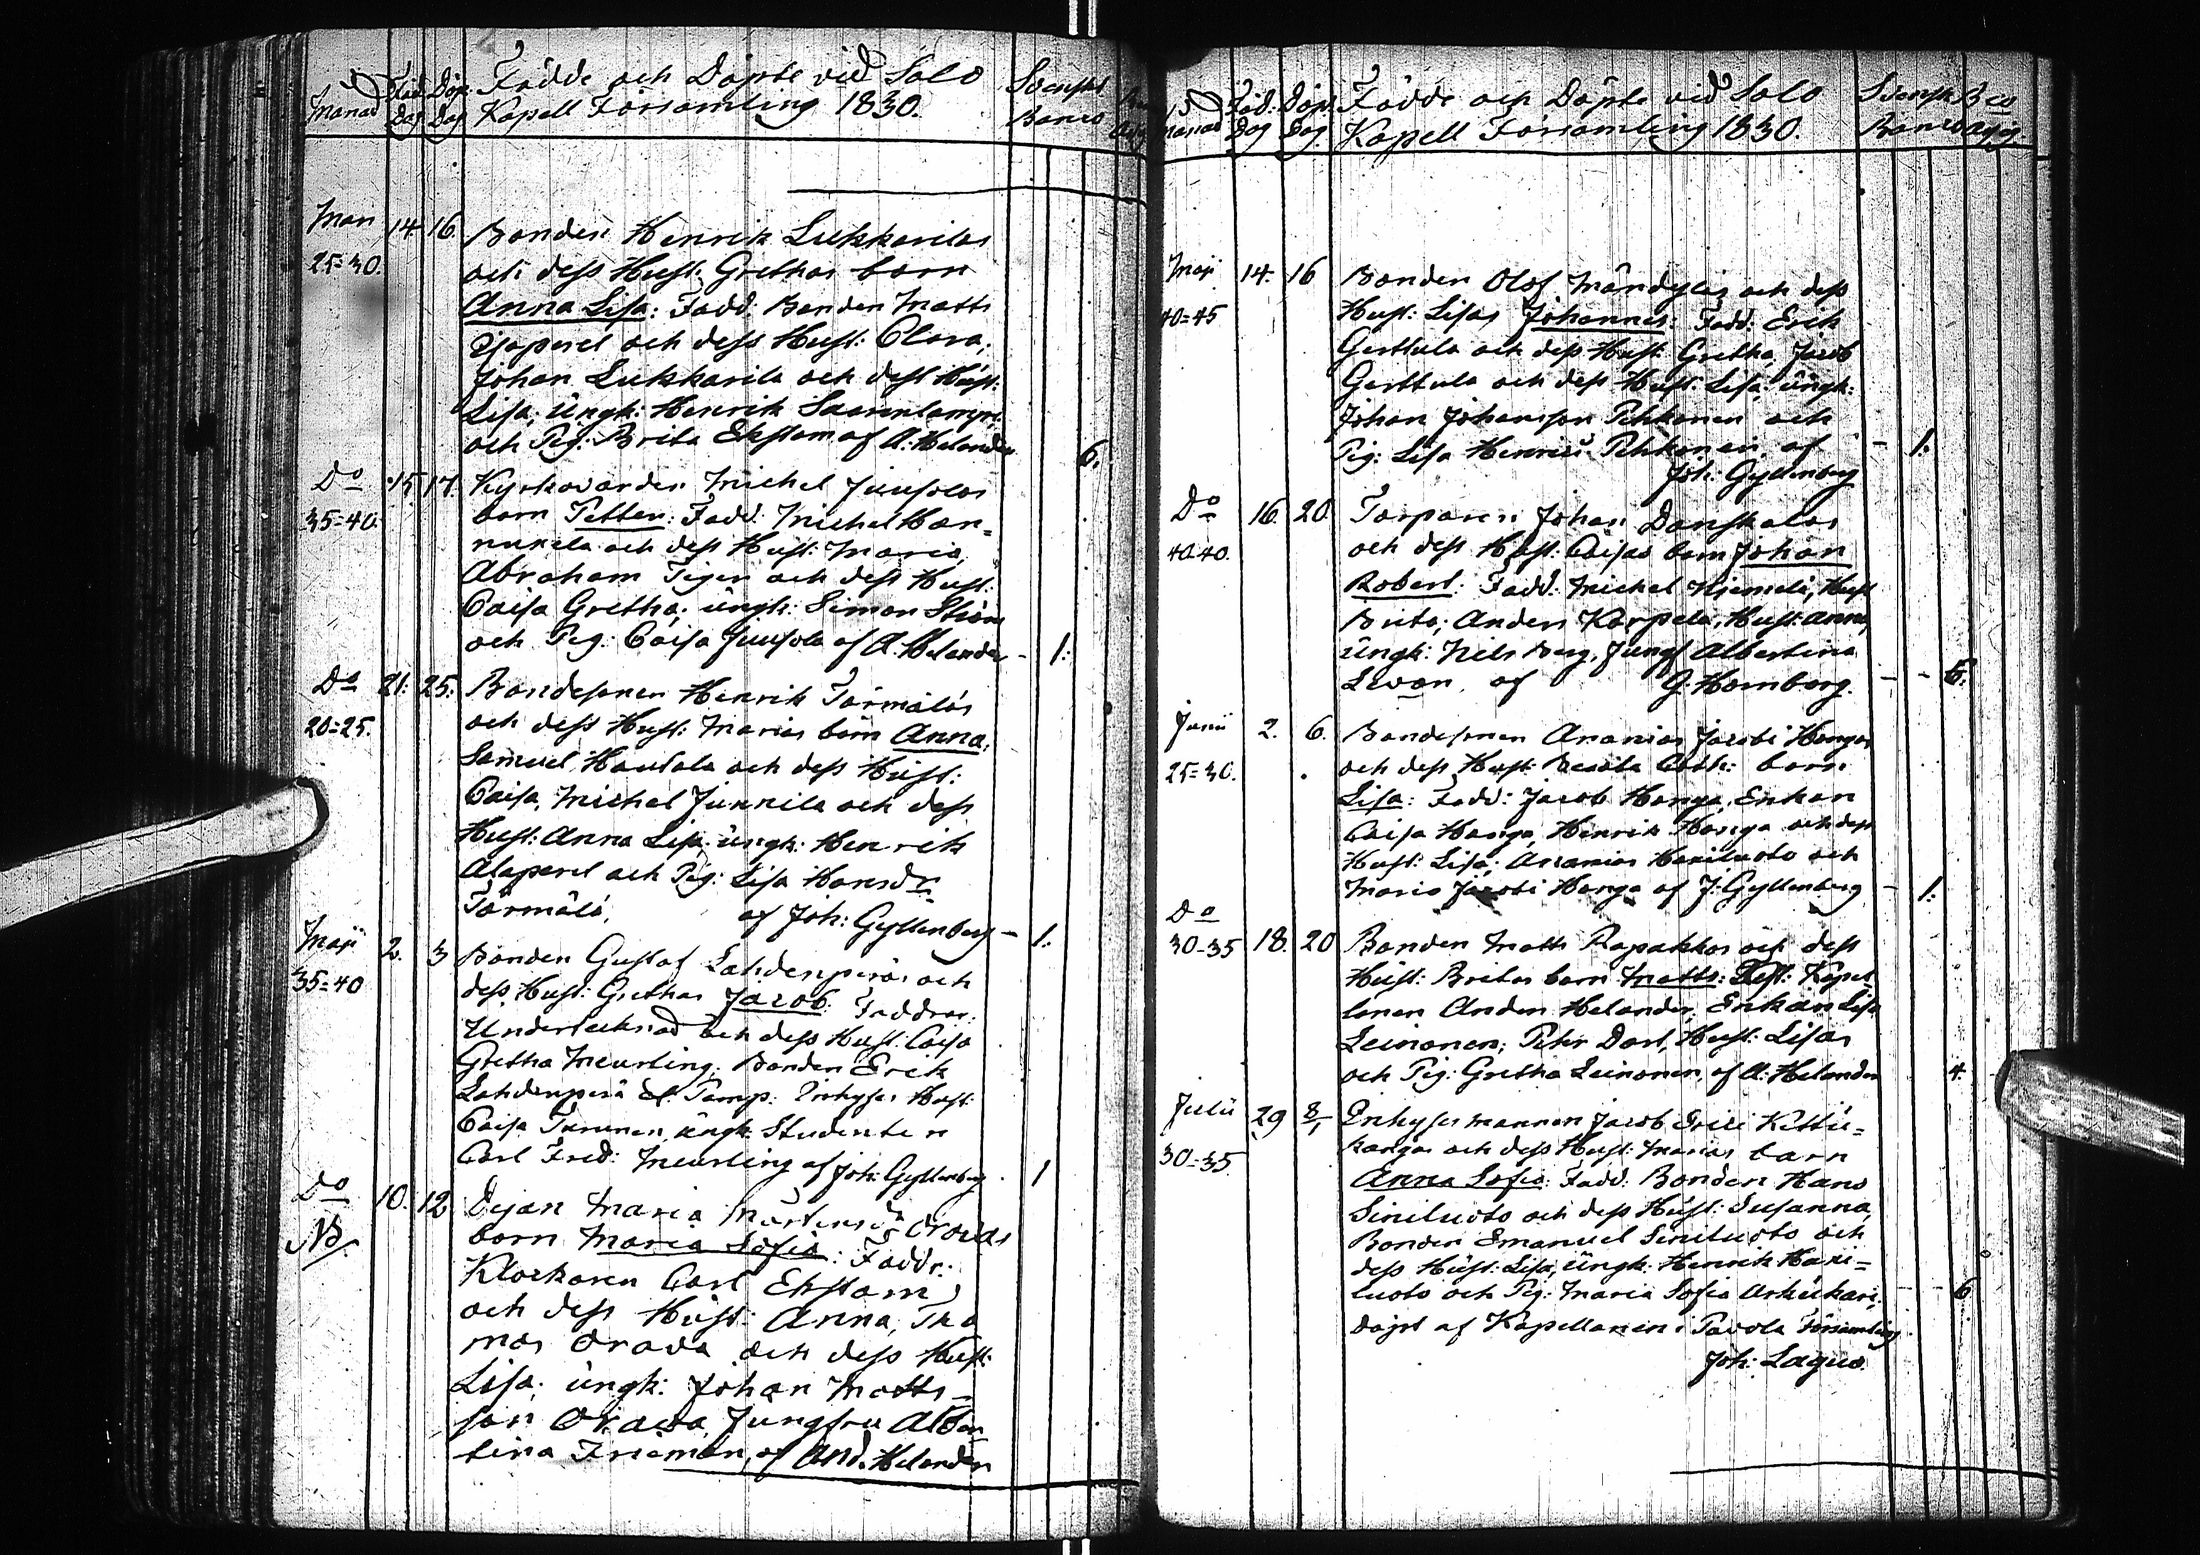 Månad Föd. Dag Döp. Dag Födde och Döpte vid Salo
Kapell Församling 1830.
Svenskt Banco
Mars 14. 16. Bonden Henrik Lukkarilas
25=30. och dess Hust: Grethas barn
Anna Lisa: Fadd: Bonden Matts
och dess Hust: Clara,
Johan Lukkarila och dess Hust:
Lisa; ungk: Henrik
och Pig: Brita Ekstam af A. Helander 6.
Do 15. 17. Kyrkovärden Michel Juusolas
35=40. barn Petter: Fadd: Michel Han=
nukela och dess Hust: Maria,
Abraham Tiger och dess Hust:
Caisa Gretha; ungk: Simon Ström
och Pig: Caisa Juusola af A. Helander - 1:
Do 21. 25. Bondesonen Henrik Törmäläs
20=25. och dess Hust: Marias barn Anna,
Samuel Hautala och dess Hust:
Caisa, Michel Junnila och dess
Hust: Anna Lisa, ungk: Henrik
Alapere och Pig: Lisa Hansdr
Törmälä, af Joh: Gyllenberg - 1:
Maji 2. 3 Bonden Gustaf Lahdenperäs och
35=40 dess Hust: Grethas Jacob: Faddrar:
Undertecknad och dess Hust: Caisa
Gretha Meurling; Bonden Erik
Lahdenperä
Caisa ungk: Studenten
Carl Fred: Meurling af Joh: Gyllenberg 1
Do 10. 12. Pigan Maria Mårtensdr Oravas
NB. barn Maria Sofia: Faddr:
Klockaren Carl Ekstam
och dess Hust: Anna, Tho
mas Orava och dess Hust:
Lisa; ungk: Johan Matts=
son Orava, Jungfru Alber
tina Frieman, af And. Helander
Månad Föd. Dag Döp. Dag. Födde och Döpte vid Salo
Kapell Församling 1830.
Svenskt Banco
Maji 14. 16 Bonden Olof Mändyläs och dess
40=45 Hust: Lisas Johannes: Fadd: Erik
Gerttula och dess Hust: Gretha, Jacob
Gerttula och dess Hust: Lisa, ungk:
Johan Johansson Pehkonen och
Pig: Lisa Henrici Pehkonen, af - 1:
Joh: Gyllenberg
Do 16. 20. Torparen Johan Danskalas
40.40. och dess Hust: Caisas barn Johan
Robert: Fadd: Michel Niemelä, Hust
Brita; Anders Karpela, Hust: Anna,
ungk: Nils Berg, Jungf Albertina
Levon, af G. Hornborg. - - 6.
Junii 2. 6. Bondesonen Ananias Jacobi Hangas
25=30. och dess Hust: Beata Cath: barn
Lisa: Fadd: Jacob Hanga, Enkan
Caisa Hanga, Henrik Hanga och dess
Hust: Lisa; Ananias Haniluoto och
Maria Jacobi Hanga af J: Gyllenberg - 1:
Do
30-35 18. 20 Bonden Matts Rapakkos och dess
Hust: Britas barn Matts: Test: Kapel
lanen Anders Helander, Enkan Lisa
Leinonen; Petter Dahl, Hust: Lisas
och Pig: Gretha Leinonen, af A: Helander 4.
Julii 29 8/ Inhysesmannen Jacob Erici Kettu=
30=35. kangas och dess Hust: Marias barn
Anna Sofia: Fadd: Bonden Hans
Siniluoto och dess Hust: Susanna,
Bonden Emanuel Siniluoto och
dess Hust: Lisa, ungk: Henrik Hani=
luoto och Pig: Maria Sofia - - 6
döpt af Kapellanen i Pavola Församling
Joh: Lagus.